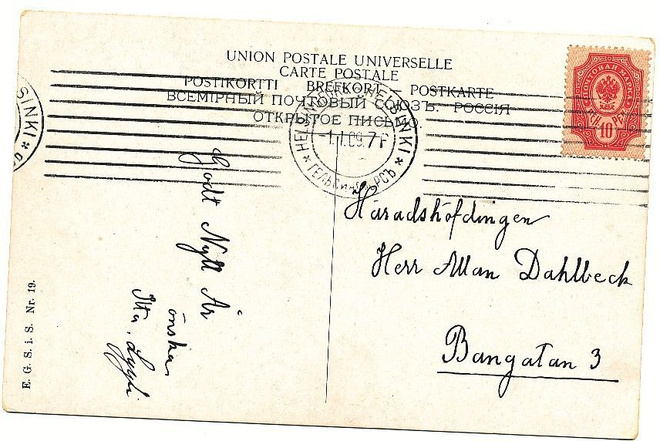 UNION POSTALE UNIVERSELLE
CARTE POSTALE
POSTIKORTTI BREFKORT POSTKARTE
ВСЕМІРНЫЙ ПОЧТОВЫЙ СОЮЗЪ. РОССІЯ
ОТКРЫТОЕ ПИСЬМО
SINKI
HELSINKI
-1.I.09.7
ГЕЛЬСИНГФОРСЪ
ПОЧТОВАЯ МАРКА
10
Godt Nytt År
önskar
Häradshöfdingen
Herr Allan Dahlbeck
Bangatan 3
E. G. S. i. S. Nr. 19.